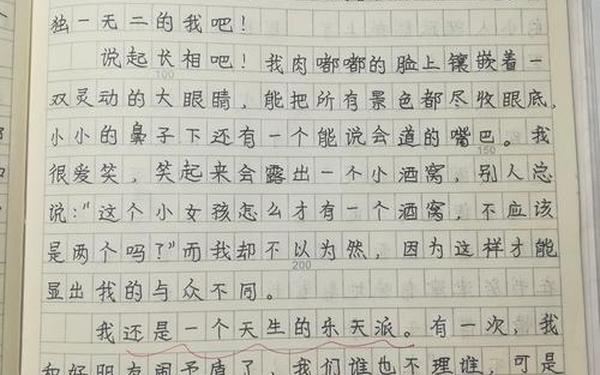 独一无二的我吧！
说起长相吧！我肉嘟嘟的脸上镶嵌着一
100
双灵动的大眼睛，能把所有景色都尽收眼底，
小小的鼻子下还有一个能说会道的嘴巴。我
150
很爱笑，笑起来会露出一个小酒窝，别人总
说："这个小女孩怎么才有一个酒窝，不应该
是两个吗？"而我却不以为然，因为这样才能
200
显出我的与众不同。
我还是一个天生的乐天派。有一次，我
和好朋友闹矛盾了，我们谁也不理谁，可是